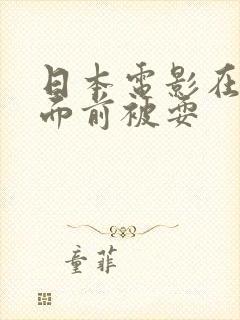 日本电影在
而前被耍
童菲